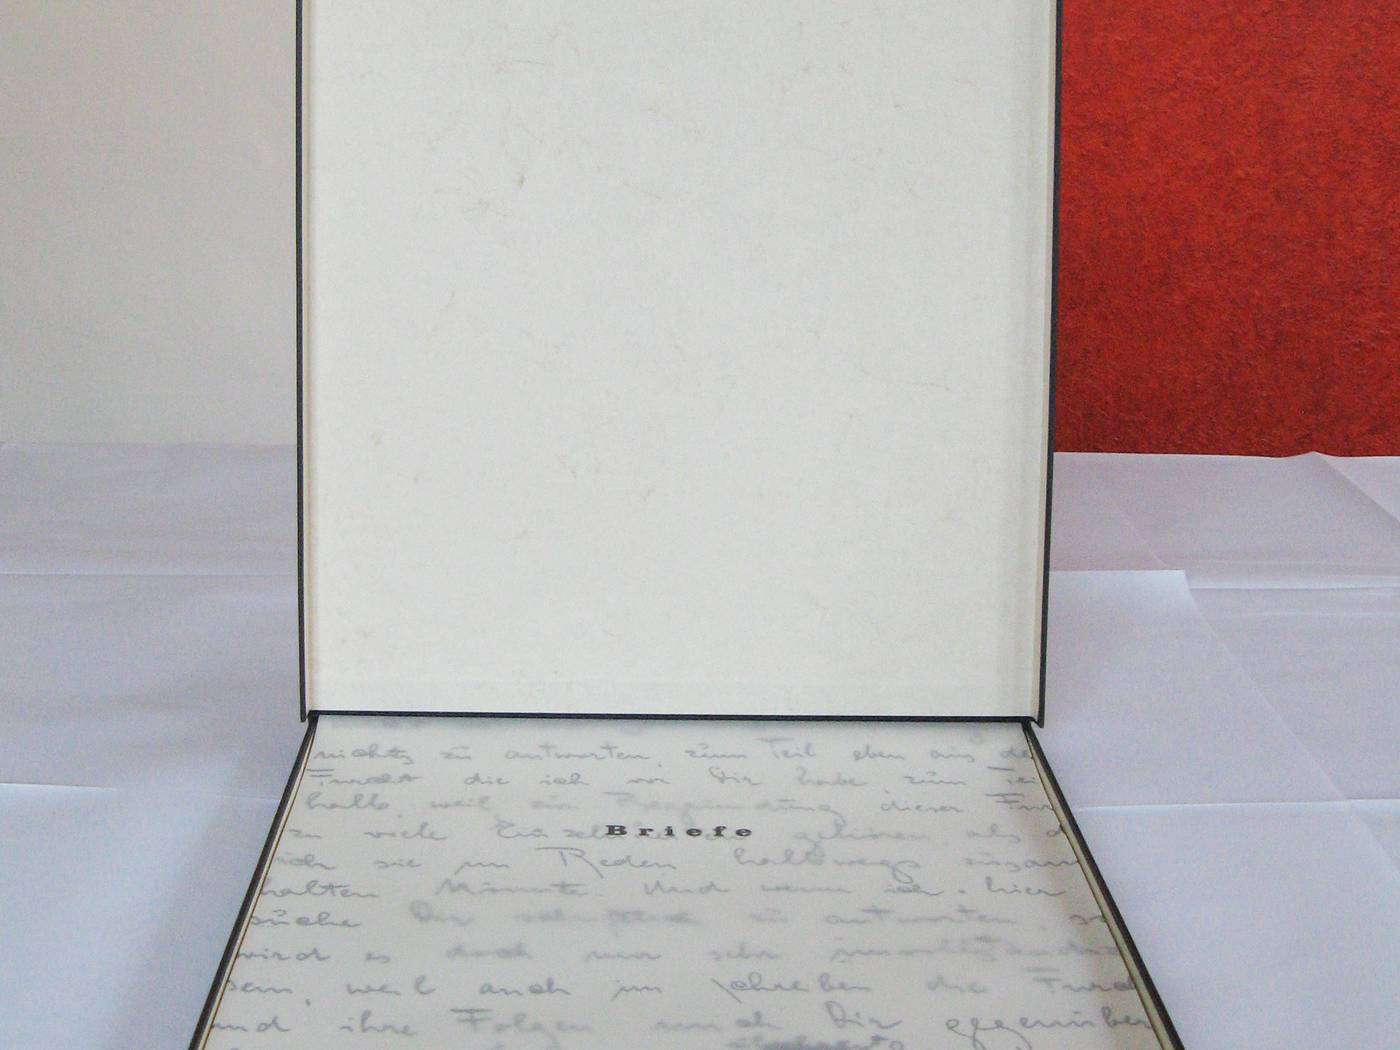 nichts zu antworten, zum Teil eben aus de
Furcht die ich vor Dir habe, zum Tei
halb weil zur Begründung dieser Fur
zu viele Einzelhei gehören, als d
Briefe
ich sie im Reden halbwegs zusam
halten könnte. Und wenn ich hier
suche Dir schriftlich zu antworten, so
wird es doch nur sehr unvollständig
sein, weil auch im Schreiben die Furch
und ihre Folgen mich Dir gegenüber